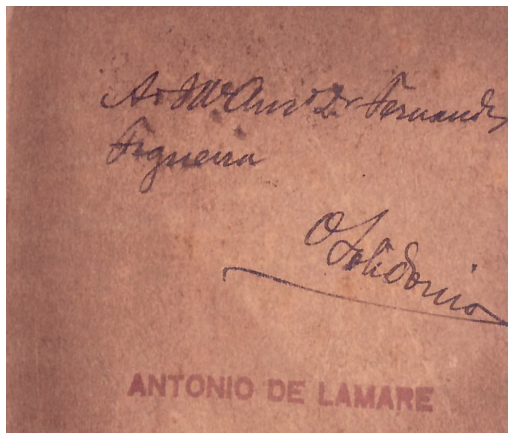 Ao Mº Amº Dr Fernandes
Figueira
O Solidonio
ANTONIO DE LAMARE